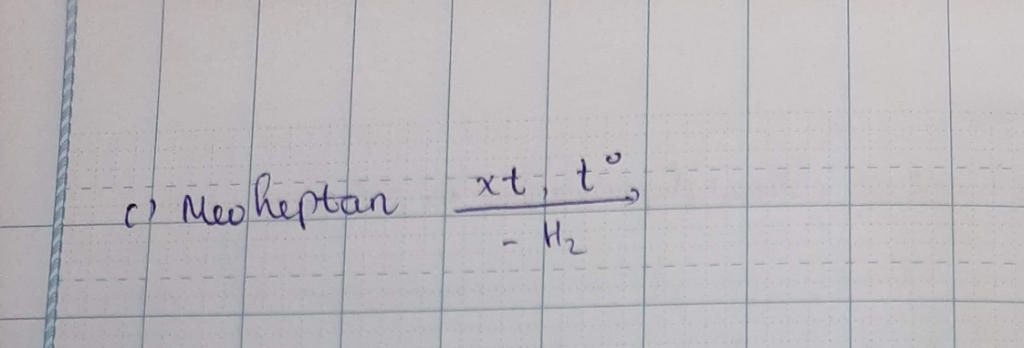 c) Neoheptan \xrightarrow[- H₂]{xt, t°}